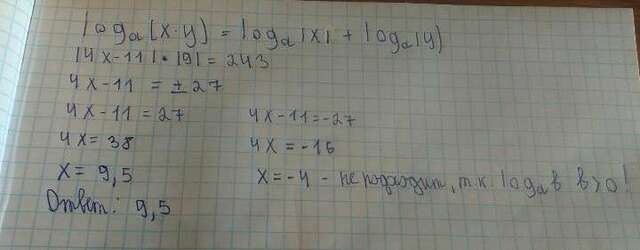 log_a (x·y) = log_a |x| + log_a |y|
|4x-11|·|9| = 243
4x-11 = ±27
4x-11=27 4x-11=-27
4x=38 4x=-16
x=9,5 x=-4 - не подходит, т.к. log_a в в>0!
Ответ: 9,5